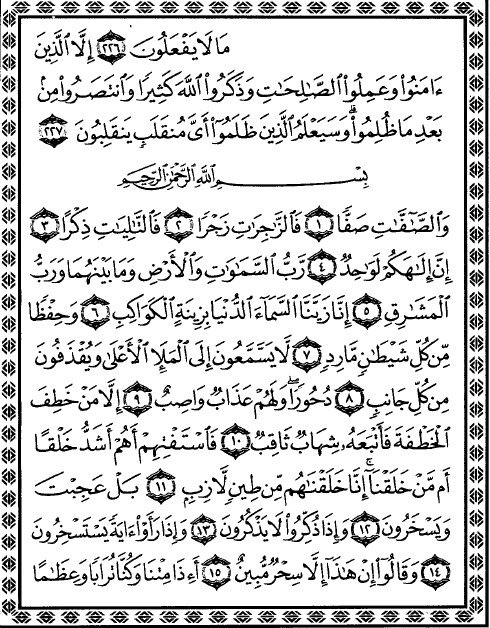 مَا لَا يَفْعَلُونَ ٢٢٦ إِلَّا ٱلَّذِينَ
ءَامَنُوا۟ وَعَمِلُوا۟ ٱلصَّـٰلِحَـٰتِ وَذَكَرُوا۟ ٱللَّهَ كَثِيرًا وَٱنتَصَرُوا۟ مِنۢ
بَعْدِ مَا ظُلِمُوا۟ ۗ وَسَيَعْلَمُ ٱلَّذِينَ ظَلَمُوٓا۟ أَىَّ مُنقَلَبٍ يَنقَلِبُونَ ٢٢٧
بِسْمِ ٱللَّهِ ٱلرَّحْمَـٰنِ ٱلرَّحِيمِ
وَٱلصَّـٰٓفَّـٰتِ صَفًّا ١ فَٱلزَّٰجِرَٰتِ زَجْرًا ٢ فَٱلتَّـٰلِيَـٰتِ ذِكْرًا ٣
إِنَّ إِلَـٰهَكُمْ لَوَٰحِدٌ ٤ رَّبُّ ٱلسَّمَـٰوَٰتِ وَٱلْأَرْضِ وَمَا بَيْنَهُمَا وَرَبُّ
ٱلْمَشَـٰرِقِ ٥ إِنَّا زَيَّنَّا ٱلسَّمَآءَ ٱلدُّنْيَا بِزِينَةٍ ٱلْكَوَاكِبِ ٦ وَحِفْظًا
مِّن كُلِّ شَيْطَـٰنٍ مَّارِدٍ ٧ لَّا يَسَّمَّعُونَ إِلَى ٱلْمَلَإِ ٱلْأَعْلَىٰ وَيُقْذَفُونَ
مِن كُلِّ جَانِبٍ ٨ دُحُورًا ۖ وَلَهُمْ عَذَابٌ وَاصِبٌ ٩ إِلَّا مَنْ خَطِفَ
ٱلْخَطْفَةَ فَأَتْبَعَهُۥ شِهَابٌ ثَاقِبٌ ١٠ فَٱسْتَفْتِهِمْ أَهُمْ أَشَدُّ خَلْقًا
أَم مَّنْ خَلَقْنَآ ۚ إِنَّا خَلَقْنَـٰهُم مِّن طِينٍ لَّازِبٍۭ ١١ بَلْ عَجِبْتَ
وَيَسْخَرُونَ ١٢ وَإِذَا ذُكِّرُوا۟ لَا يَذْكُرُونَ ١٣ وَإِذَا رَأَوْا۟ ءَايَةً يَسْتَسْخِرُونَ
١٤ وَقَالُوٓا۟ إِنْ هَـٰذَآ إِلَّا سِحْرٌ مُّبِينٌ ١٥ أَءِذَا مِتْنَا وَكُنَّا تُرَابًا وَعِظَـٰمًا